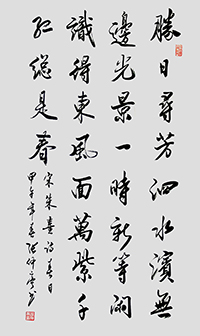 勝日尋芳泗水濱無
邊光景一時新等閑
識得東風面萬紫千
紅總是春
宋朱熹詩春日
甲午年春張仲雲书